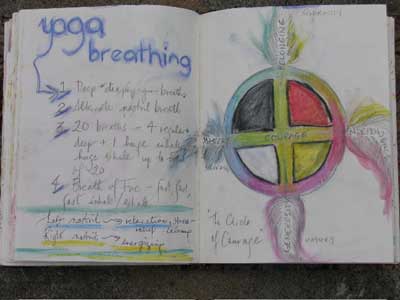 yoga
breathing
1. Deep breaths
2. Alternate nostril breath
3. 20 breaths - 4 regular
deep + 1 huge inhale
huge exhale up to
of 20
4. Breath of Fire - fast, fast,
fast inhale/exhale
Left nostril → relaxation, stress
relief calming
Right nostril → energizing
GENEROSITY
BELONGING
COURAGE
MASTERY
GENEROSITY
"The Circle
of Courage"